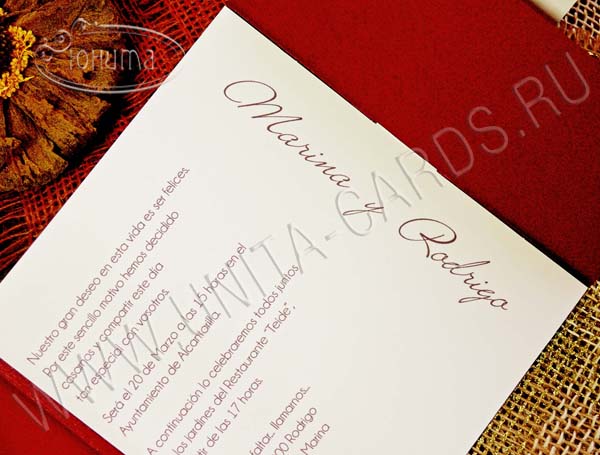 Fortuma
Marina y Rodrigo
Nuestro gran deseo en esta vida es ser felices.
por este sencillo motivo hemos decidido
casarnos y compartir este día
tan especial con vosotros.
Será el 20 de Marzo a las 15 horas en el
Ayuntamiento de Alcantarilla.
A continuación lo celebraremos todos juntos
los jardines del Restaurante "Teide",
tir de las 17 horas.
faltar, llamarnos...
00 Rodrigo
Marina
WWW.UNITA-CARDS.RU